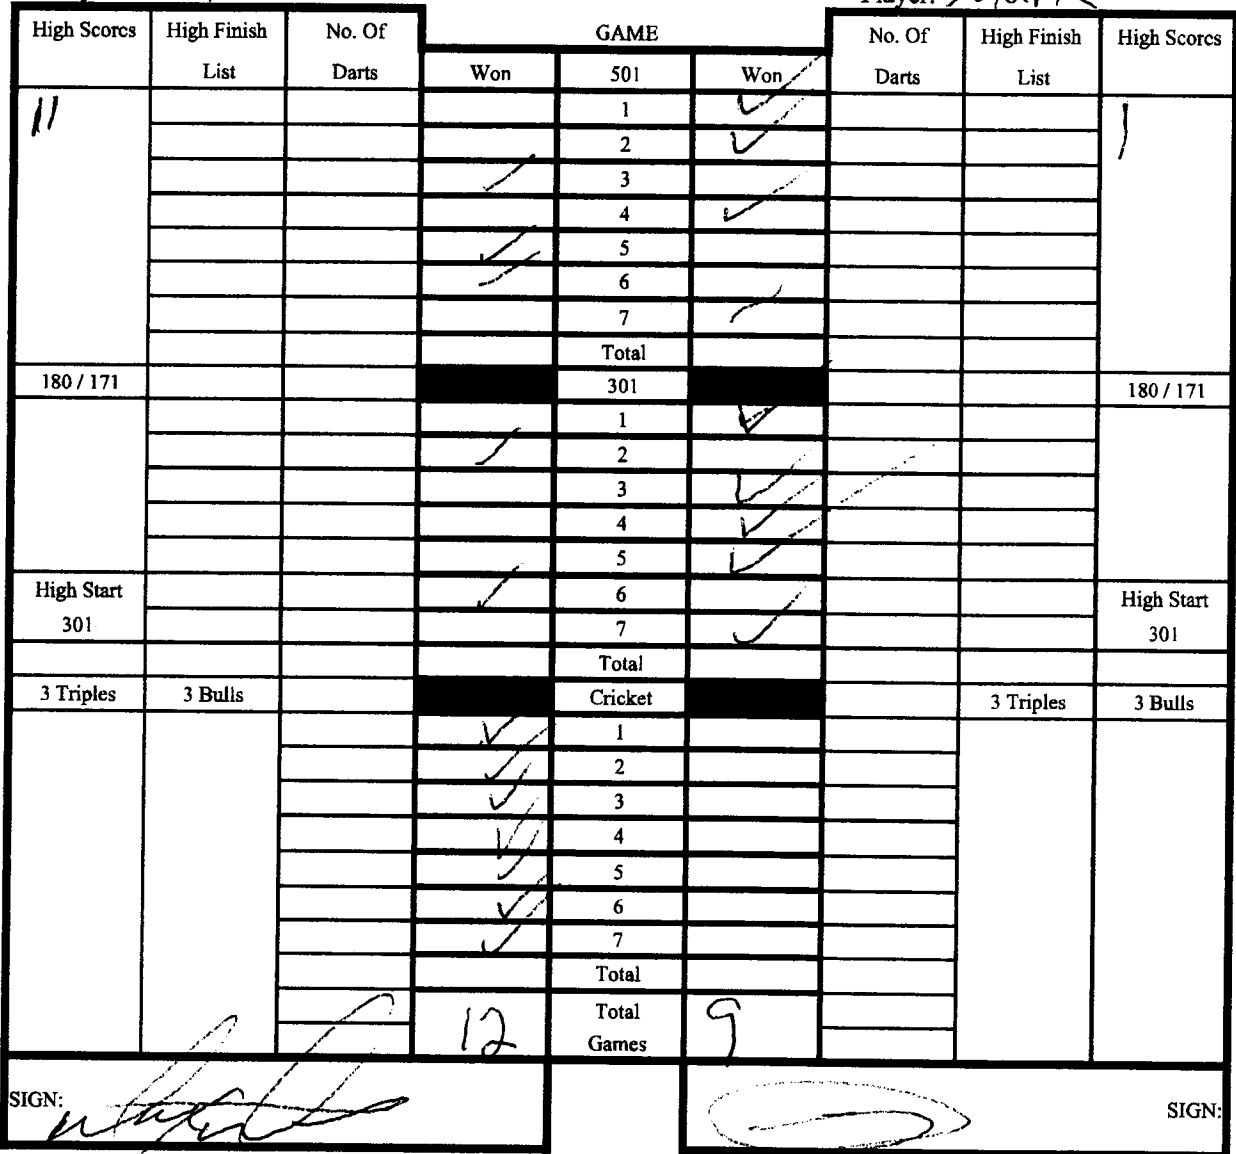 Player:
High Scores High Finish List No. Of Darts GAME No. Of Darts High Finish List High Scores
Won 501 Won
11 1 ✓ 1
2 ✓
✓ 3
4 ✓
✓ 5
✓ 6
7 ✓
Total
180 / 171 301 180 / 171
1 ✓
✓ 2
3 ✓
4 ✓
5 ✓
High Start 301 ✓ 6 High Start 301
7 ✓
Total
3 Triples 3 Bulls Cricket 3 Triples 3 Bulls
✓ 1
✓ 2
✓ 3
✓ 4
✓ 5
✓ 6
✓ 7
Total
12 Total Games 9
SIGN: SIGN: